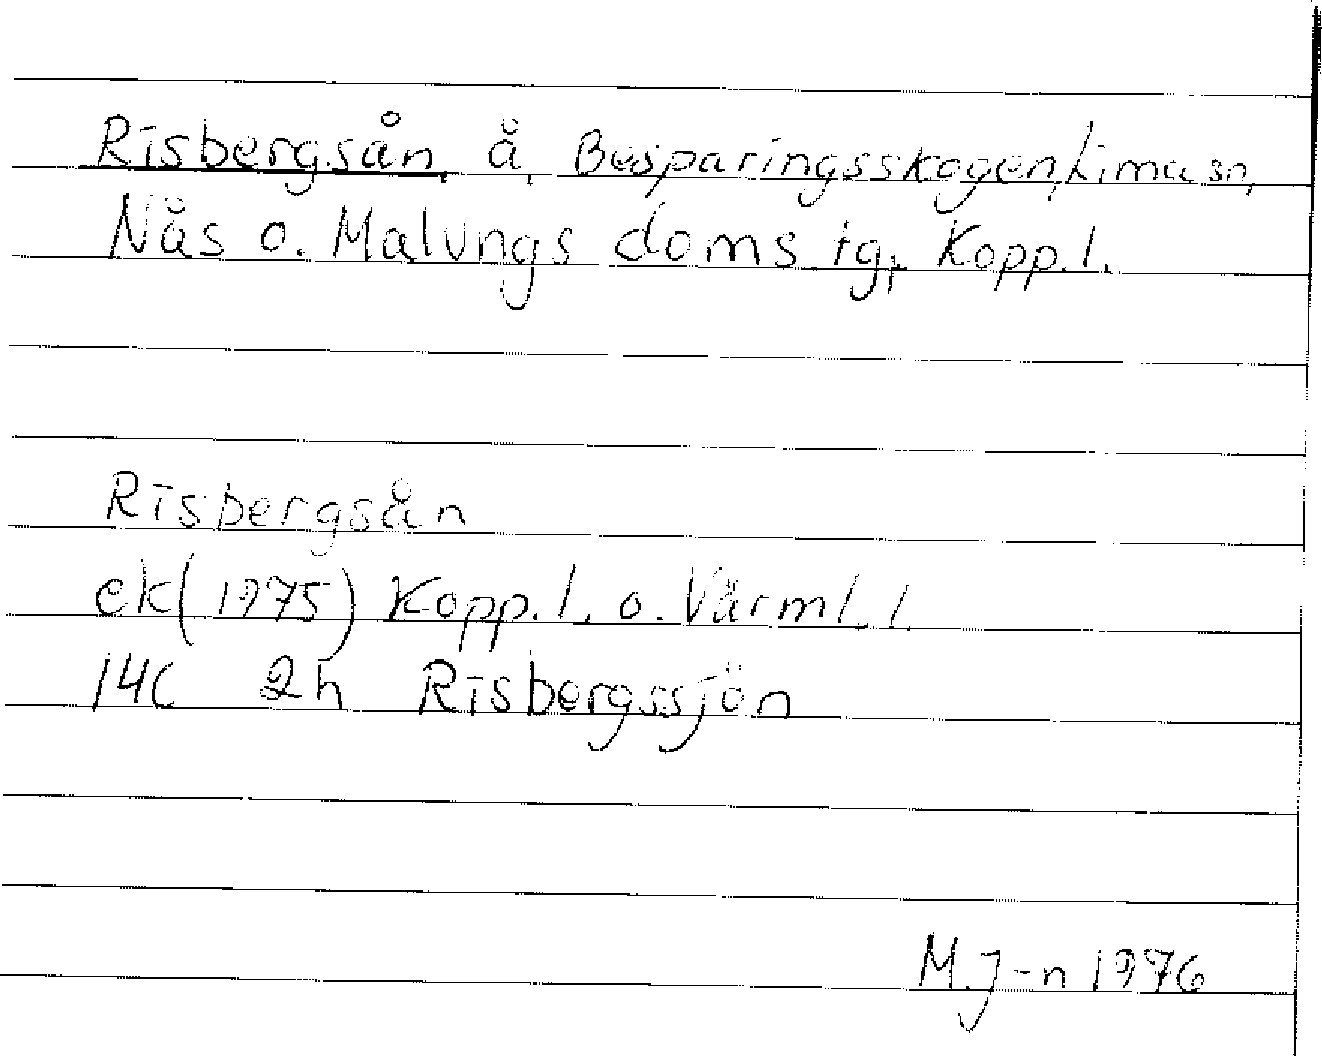 Risbergsån, å, Besparingsskogen, Lima sn,
Nås o. Malungs doms tg, Kopp. l.
Risbergsån
ek (1975) Kopp. l. o. Värml. l.
14C 2h Risbergssjön
M.J-n 1976